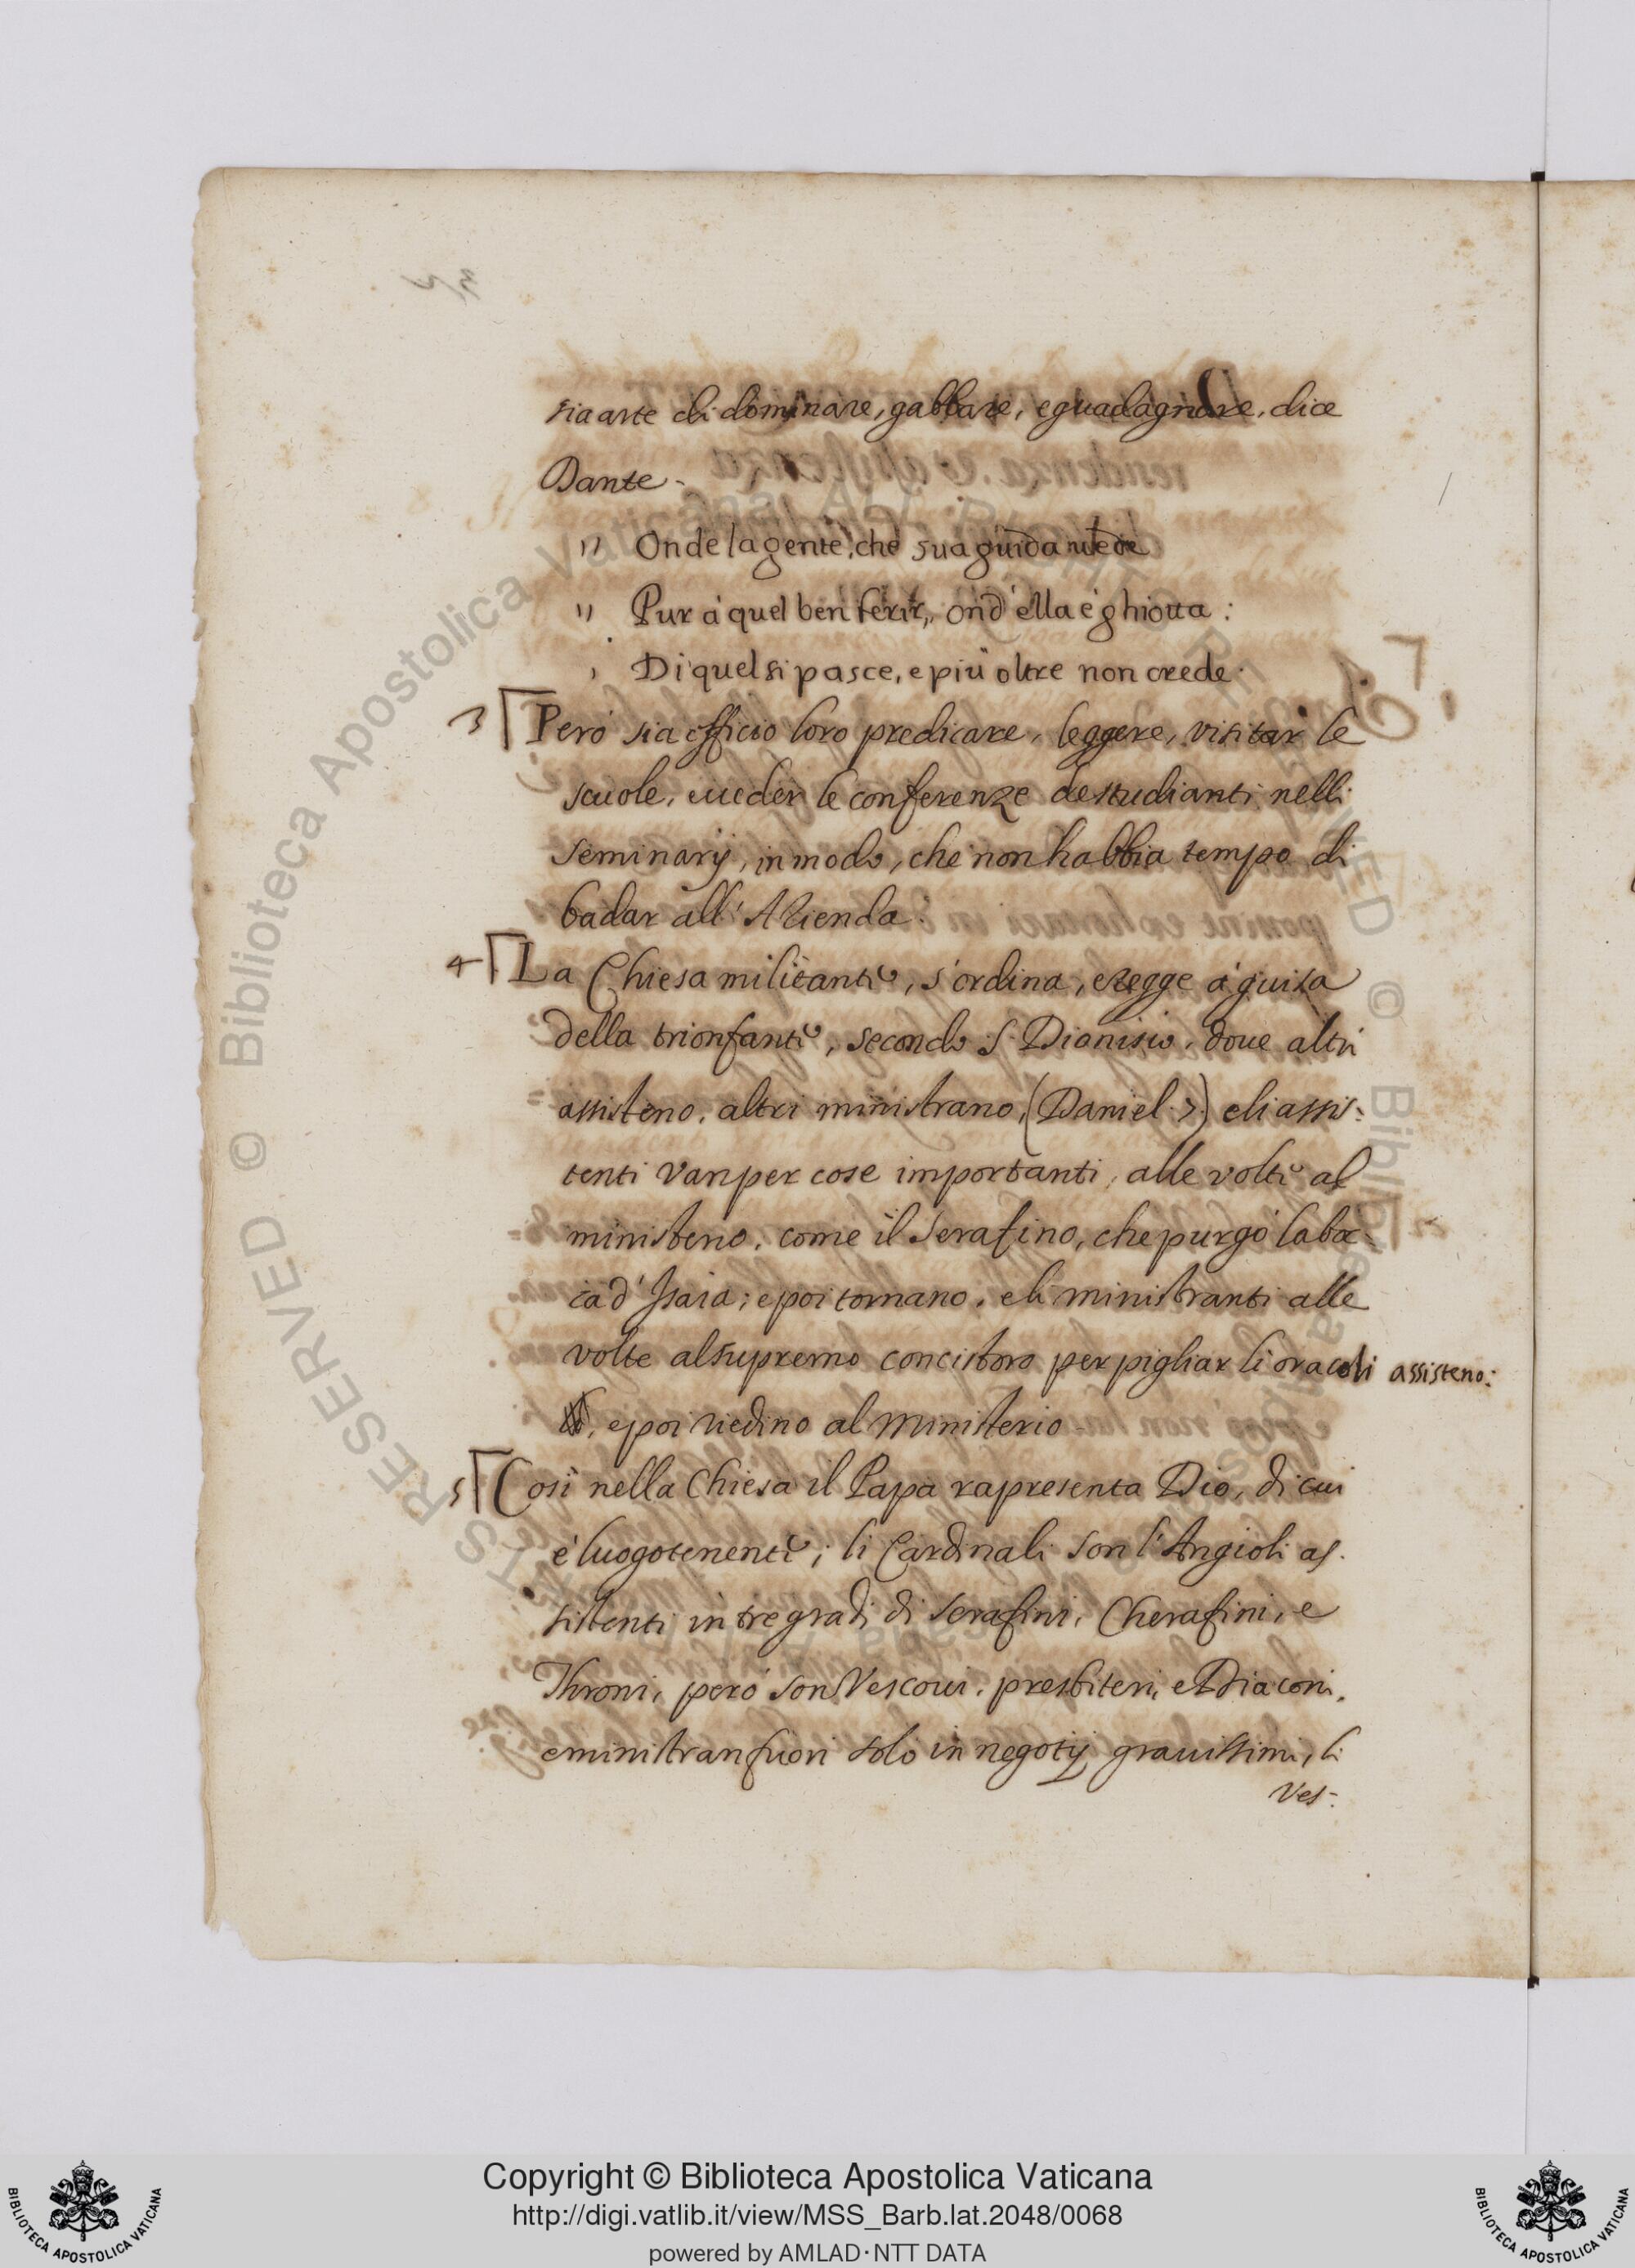 sia arte di dominare, gabbare, e guadagnare, dice
Dante.
" Onde la gente, che sua guida vede
" Pur à quel ben ferir, ond'ella è ghiotta:
, Di quel si pasce, e più oltre non crede.
3 Però sia officio loro predicare, leggere, visitar le
scuole, e ueder le conferenze de studianti nelli
Seminarij, in modo, che non habbia tempo di
badar all'Azienda.
4 La Chiesa militante, s'ordina, e regge à guisa
della trionfante, secondo S. Dionisio, doue altri
assisteno, altri ministrano, (Daniel. 7.) e li assis-
tenti van per cose importanti, alle volte al
ministerio, come il Serafino, che purgò la boc-
ca d'Isaia; e poi tornano, e li ministranti alle
volte al supremo concistoro per pigliar li oracoli assisteno:
, e poi riedino al Ministerio
5 Così nella Chiesa il Papa rapresenta Dio, di cui
è luogotenente; li Cardinali son l'Angioli as-
sistenti in tre gradi di Serafini, Cherafini, e
Throni, però son Vescoui, presbiteri, e Diaconi,
e ministran fuori solo in negotij grauissimi, li
Ves-
Copyright © Biblioteca Apostolica Vaticana
http://digi.vatlib.it/view/MSS_Barb.lat.2048/0068
powered by AMLAD·NTT DATA
BIBLIOTECA APOSTOLICA VATICANA
BIBLIOTECA APOSTOLICA VATICANA